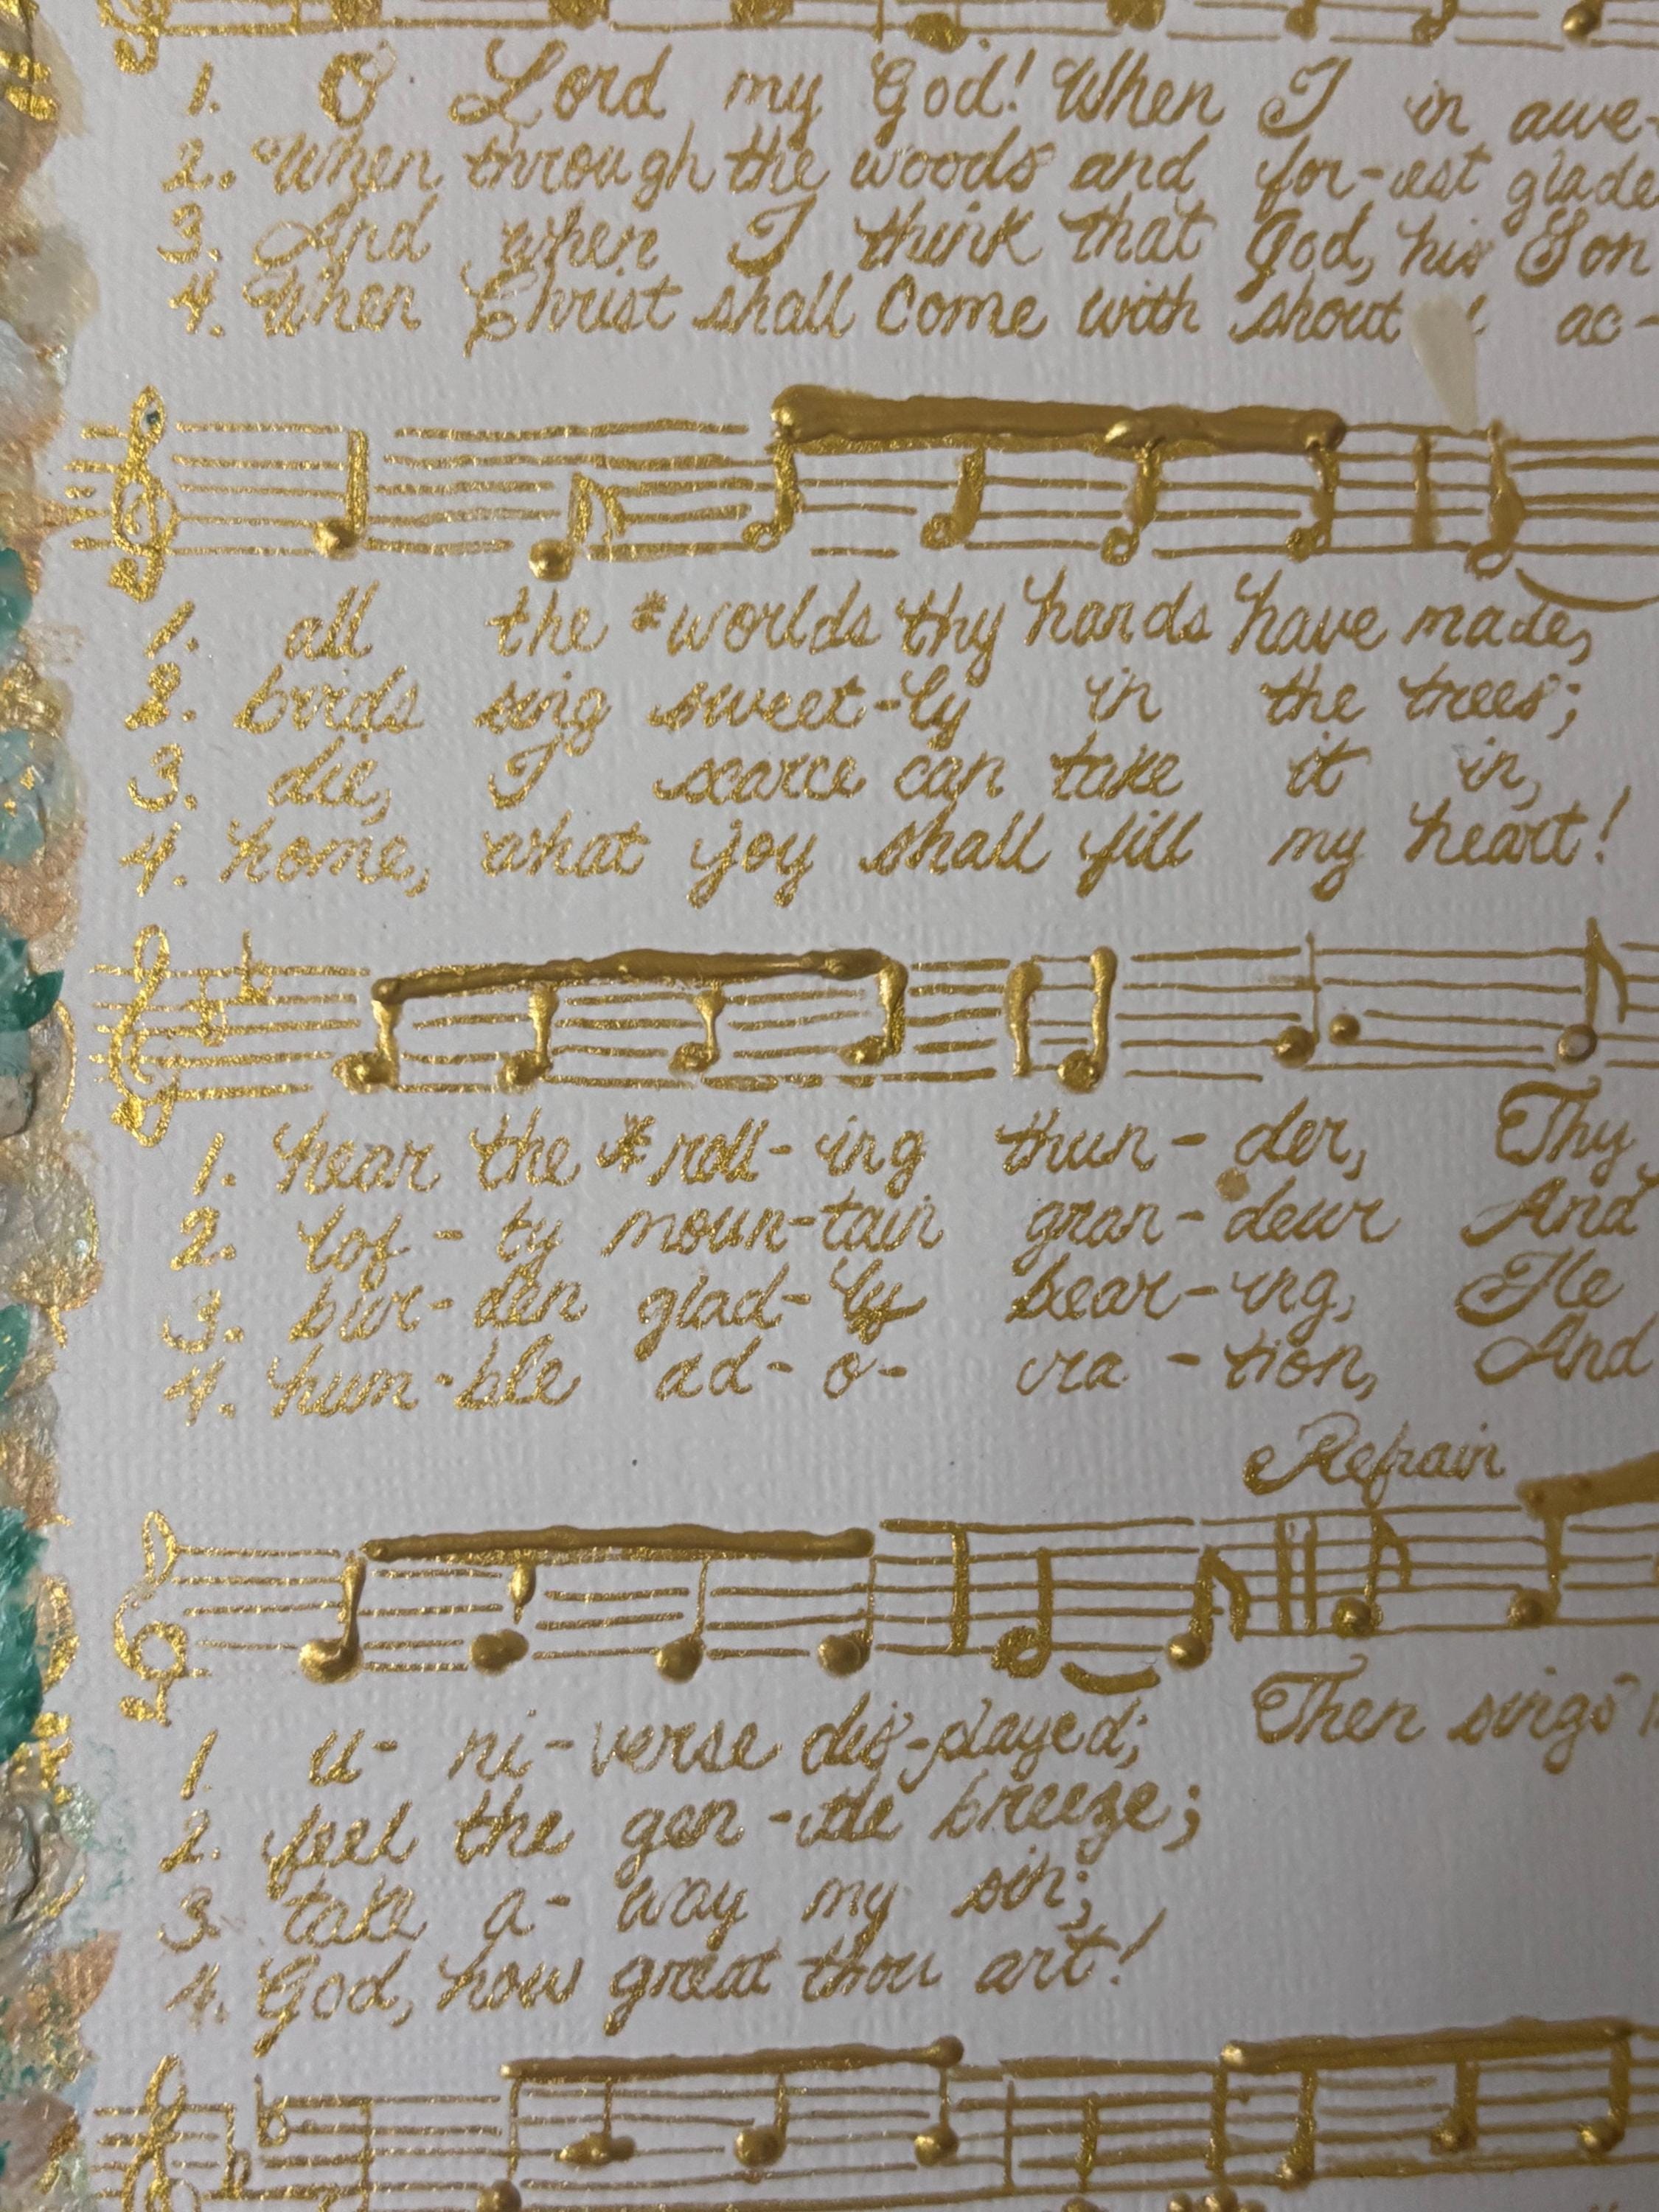 1. O Lord my God! When I in awe-
2. When through the woods and for-est glade
3. And when I think that God, his Son
4. When Christ shall come with shout ac-
1. all the *worlds thy hands have made,
2. birds sing sweet-ly in the trees;
3. die, I scarce can take it in,
4. home, what joy shall fill my heart!
1. hear the *roll-ing thun-der, Thy
2. lof-ty moun-tain gran-deur And
3. bur-den glad-ly bear-ing, He
4. hum-ble ad-o-ra-tion, And
Refrain
1 u-ni-verse dis-played; Then sings
2. feel the gen-tle breeze;
3. take a-way my sin;
4. God, how great thou art!